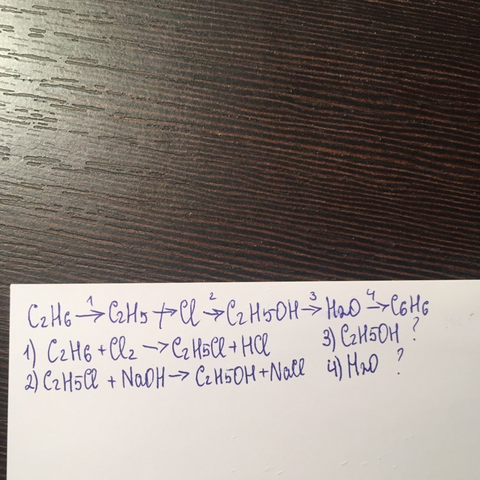 C2H6 →1 C2H5 + Cl →2 C2H5OH →3 H2O →4 C6H6
1) C2H6 + Cl2 → C2H5Cl + HCl 3) C2H5OH ?
2) C2H5Cl + NaOH → C2H5OH + NaCl 4) H2O ?